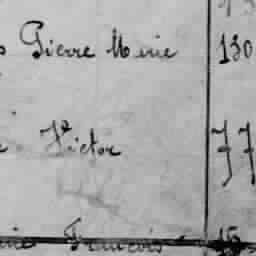 Pierre Marie 130
Victor 77
François 15